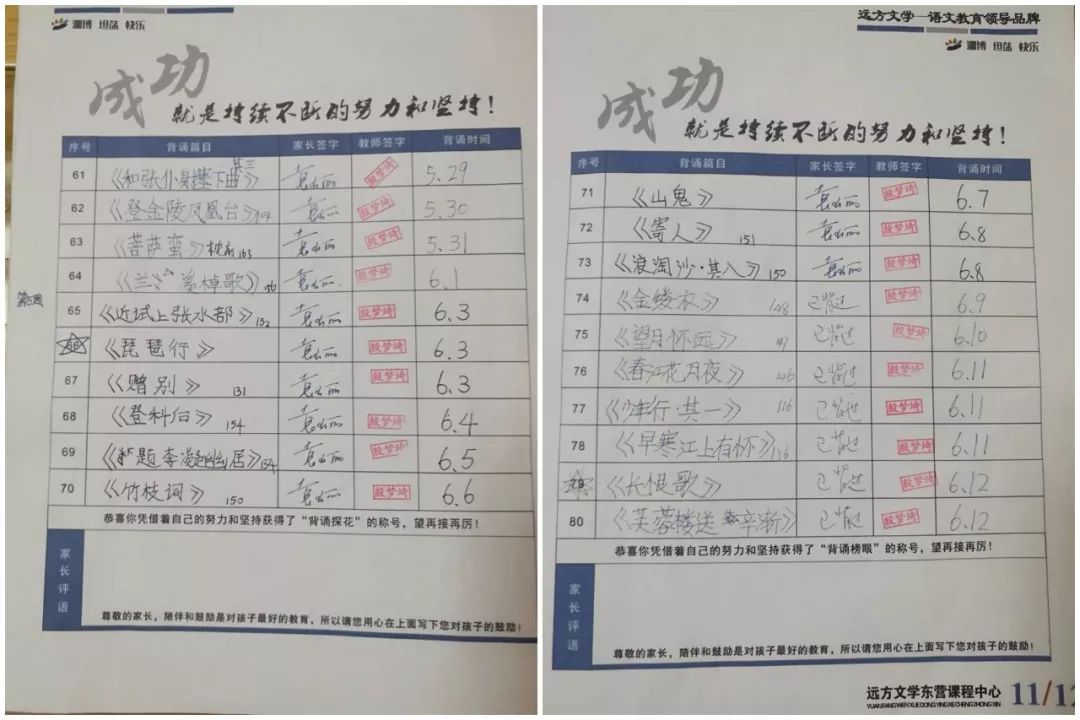 渊博 坦荡 快乐
成功
就是持续不断的努力和坚持!
序号 背诵篇目 家长签字 教师签字 背诵时间
61 《和张仆射塞下曲》其三 殷梦琦 5.29
62 《登金陵凤凰台》 殷梦琦 5.30
63 《菩萨蛮》 163 殷梦琦 5.31
64 《兰溪棹歌》 殷梦琦 6.1
65 《近试上张水部》 152 殷梦琦 6.3
66 《琵琶行》 殷梦琦 6.3
67 《赠别》 131 殷梦琦 6.3
68 《登科后》 154 殷梦琦 6.4
69 《题李凝幽居》 殷梦琦 6.5
70 《竹枝词》 150 殷梦琦 6.6
恭喜你凭借着自己的努力和坚持获得了“背诵探花”的称号，望再接再厉!
家长评语
尊敬的家长，陪伴和鼓励是对孩子最好的教育，所以请您用心在上面写下您对孩子的鼓励!
远方文学—语文教育领导品牌
渊博 坦荡 快乐
成功
就是持续不断的努力和坚持!
序号 背诵篇目 家长签字 教师签字 背诵时间
71 《山鬼》 殷梦琦 6.7
72 《寄人》 151 殷梦琦 6.8
73 《浪淘沙·其八》 150 殷梦琦 6.8
74 《金缕衣》 148 已背过 殷梦琦 6.9
75 《望月怀远》 已背过 殷梦琦 6.10
76 《春江花月夜》 146 已背过 殷梦琦 6.11
77 《少年行·其一》 126 已背过 殷梦琦 6.11
78 《早寒江上有怀》 126 已背过 殷梦琦 6.11
79 《长恨歌》 已背过 殷梦琦 6.12
80 《芙蓉楼送辛渐》 已背过 殷梦琦 6.12
恭喜你凭借着自己的努力和坚持获得了“背诵榜眼”的称号，望再接再厉!
家长评语
尊敬的家长，陪伴和鼓励是对孩子最好的教育，所以请您用心在上面写下您对孩子的鼓励!
远方文学东营课程中心 11/12
YUANFANGWENXUEDONGYINGKECHENGZHONGXIN